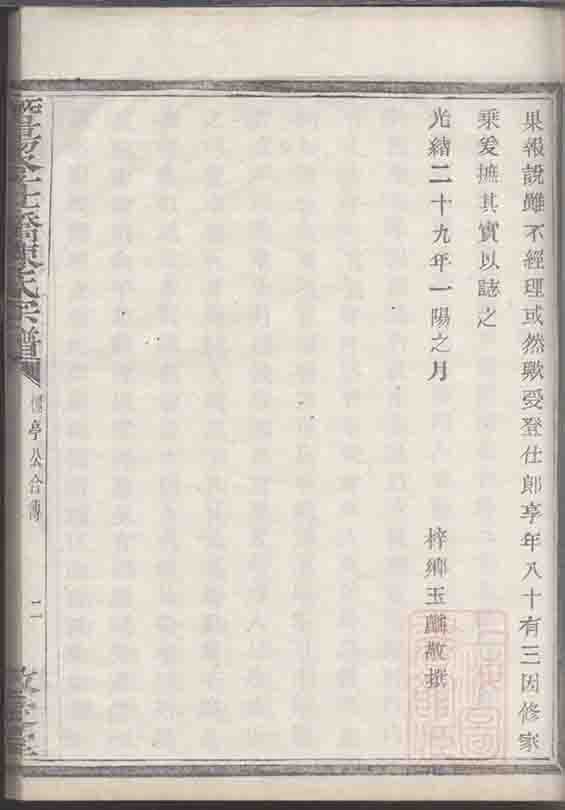 果報說雖不經理或然歟受登仕郎享年八十有三因修家
乘爰摭其實以誌之
光緒二十九年一陽之月
梓鄉玉麟敬撰
暨陽 陳氏宗譜
亭公合傳
二